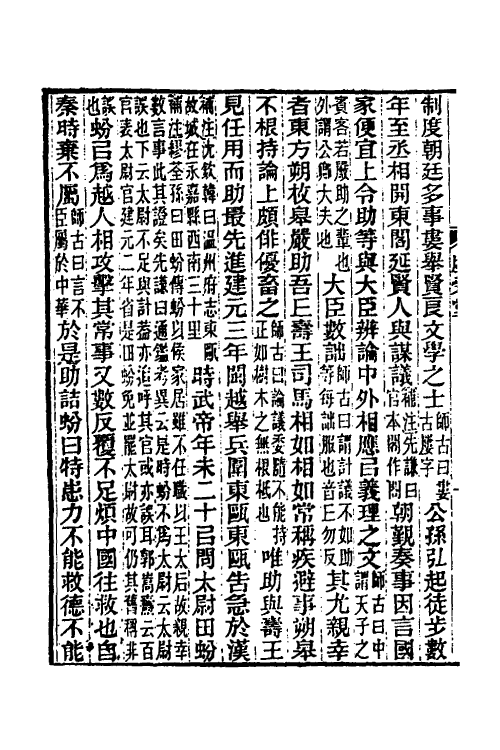 制度朝廷多事婁舉賢良文學之士師古曰婁古屢字公孫弘起徒步數
年至丞相開東閤延賢人與謀議補注先謙曰官本閤作閣朝覲奏事因言國
家便宜上令助等與大臣辨論中外相應㠯義理之文師古曰中謂天子之
賓客若嚴助之輩也外謂公卿大夫也大臣數詘師古曰謂計議不如助等每詘服也音丘勿反其尤親幸
者東方朔枚皋嚴助吾丘壽王司馬相如相如常稱疾避事朔皋
不根持論上頗俳優畜之師古曰論議委隨不能持正如樹木之無根柢也唯助與壽王
見任用而助最先進建元三年閩越舉兵圍東甌東甌告急於漢
補注沈欽韓曰溫州府志東甌故城在永嘉縣西南三十里時武帝年未二十㠯問太尉田蚡
補注繆荃孫曰田蚡傳蚡以侯家居雖不任職以王太后故親幸
數言事此其證矣先謙曰通鑑考異云是時蚡不為太尉云太尉
誤也下云太尉不足與計蓋亦追呼其官或亦誤耳郭嵩燾云百
官表太尉官建元二年省是田蚡免並罷太尉故可仍其舊稱非
誤也蚡㠯為越人相攻擊其常事又數反覆不足煩中國往救也自
秦時棄不屬師古曰言不臣屬於中華於是助詰蚡曰特患力不能救德不能